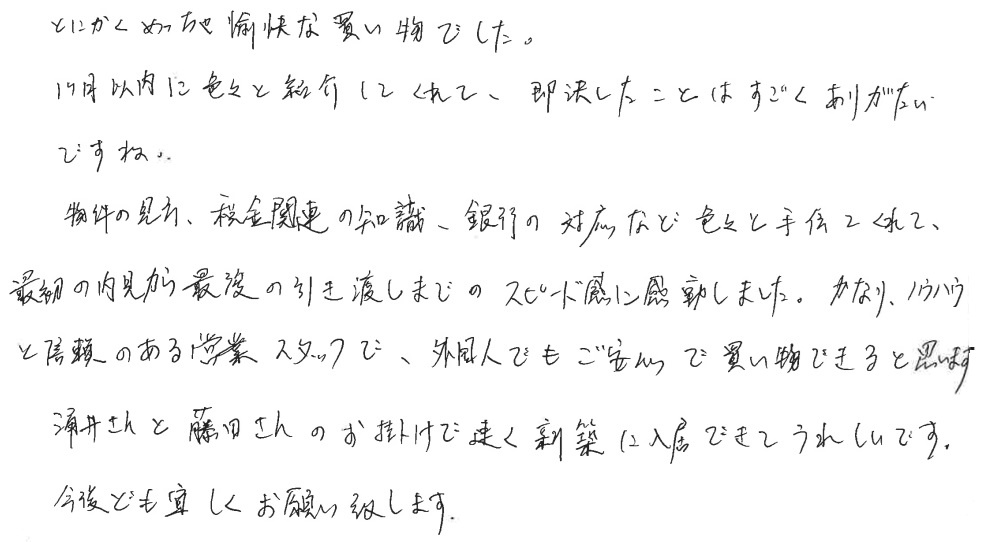 とにかくめっちゃ愉快な買い物でした。
1ヶ月以内に色々と紹介してくれて、即決したことはすごくありがたい
ですね。
物件の見方、税金関連の知識、銀行の対応など色々と手伝てくれて、
最初の内見から最後の引き渡しまでのスピード感に感動しました。かなり、ノウハウ
と信頼のある営業スタッフで、外国人でもご安心で買い物できると思います
涌井さんと藤田さんのお掛けで速く新築に入居できてうれしいです。
今後とも宜しくお願い致します.